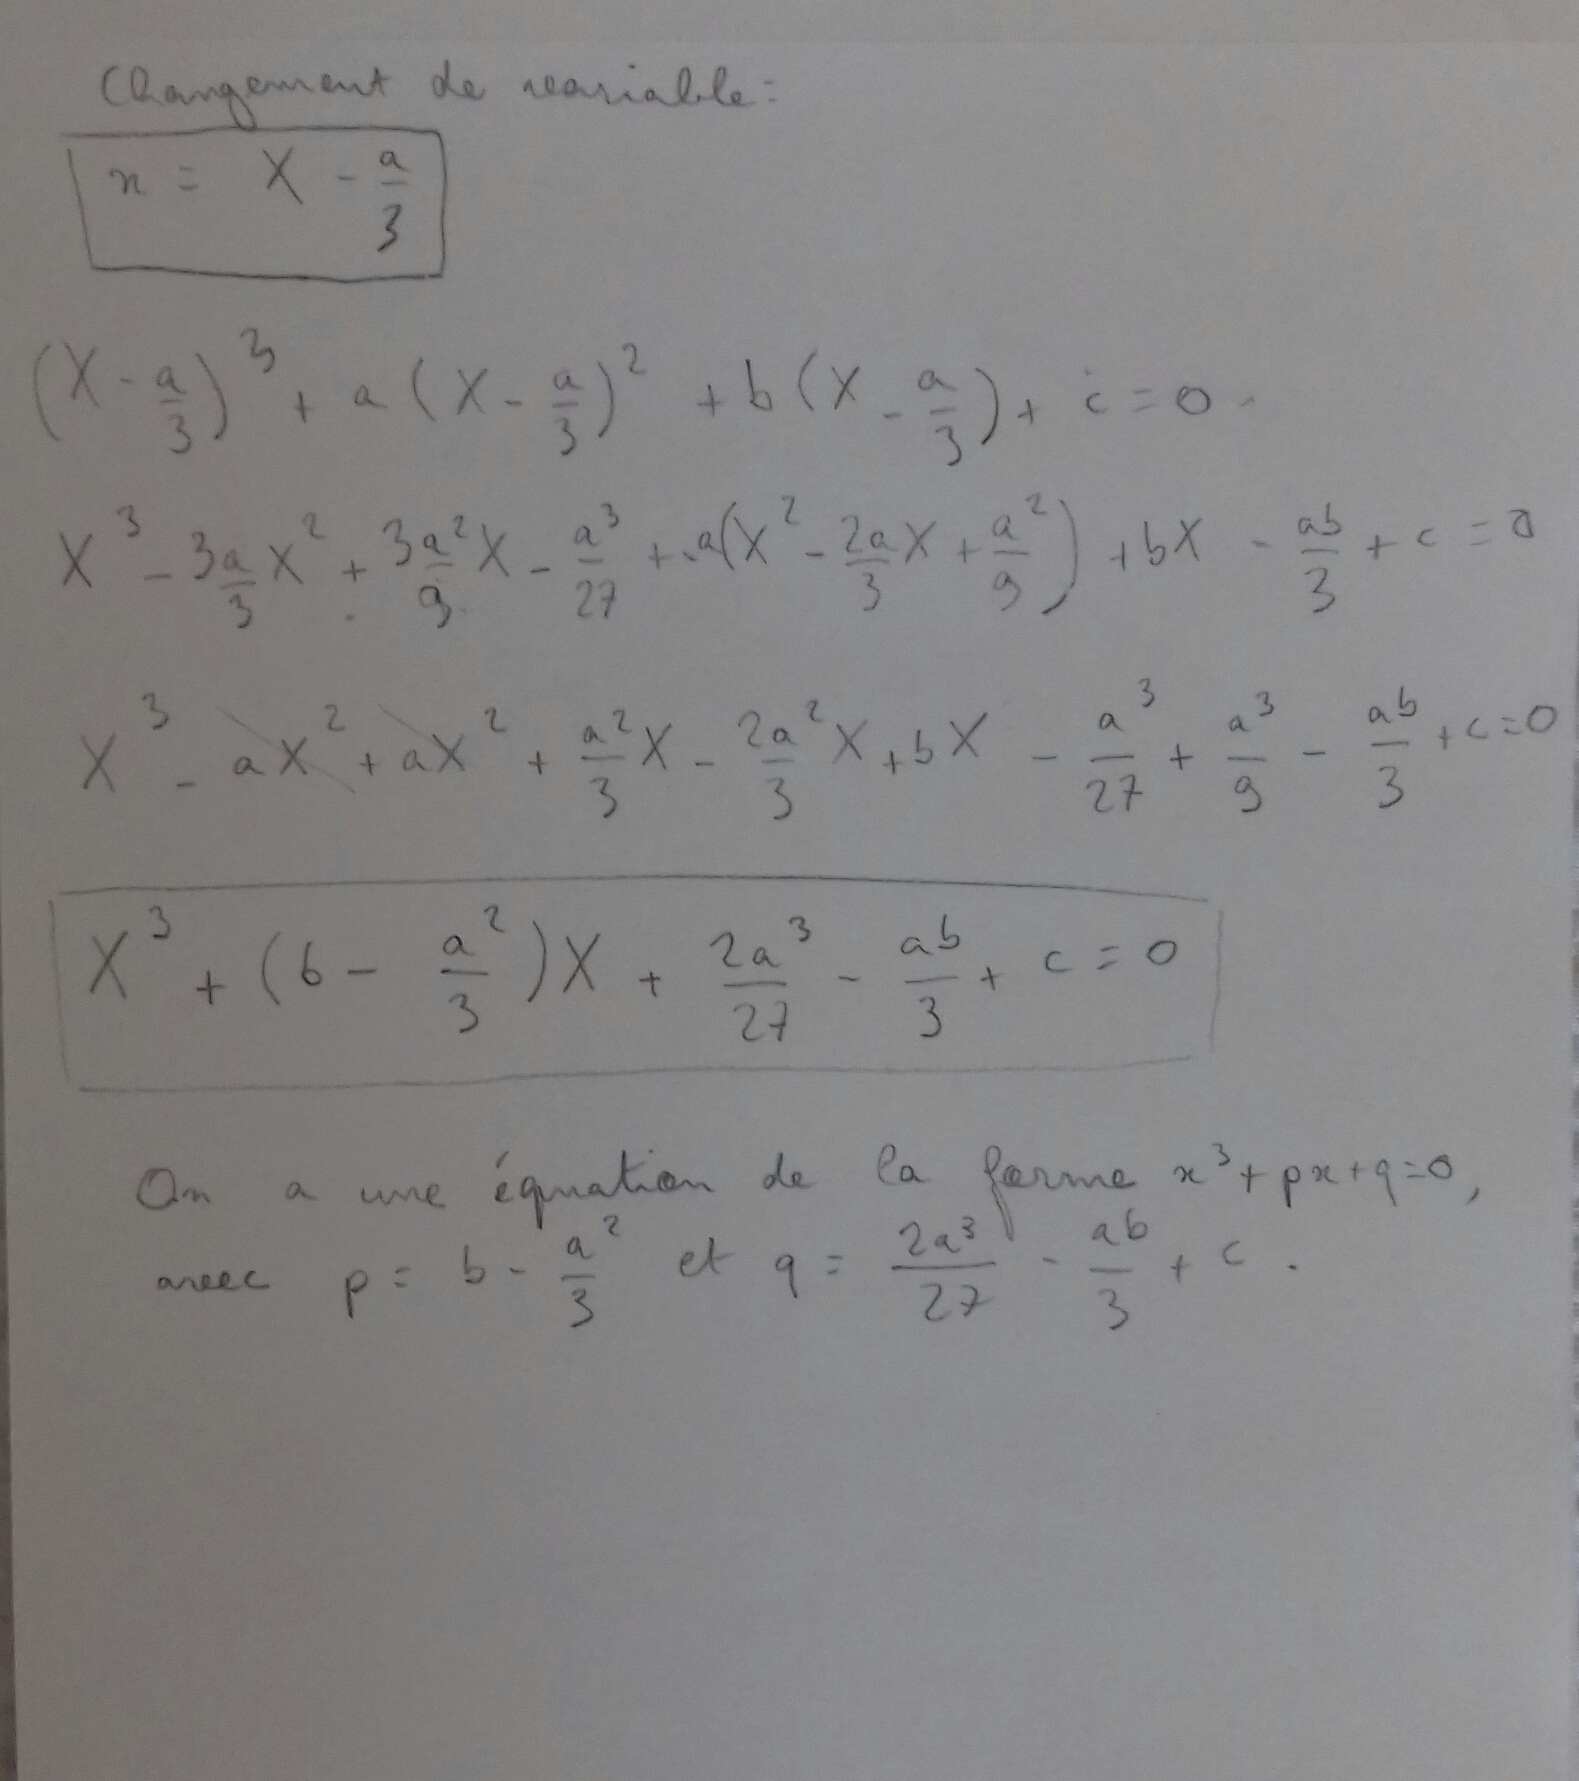 Changement de variable :
x = X - a/3
(X - a/3)³ + a(X - a/3)² + b(X - a/3) + c = 0
X³ - 3a/3 X² + 3a²/9 X - a³/27 + a(X² - 2a/3 X + a²/9) + bX - ab/3 + c = 0
X³ - aX² + aX² + a²/3 X - 2a²/3 X + bX - a³/27 + a³/9 - ab/3 + c = 0
X³ + (b - a²/3)X + 2a³/27 - ab/3 + c = 0
On a une équation de la forme x³ + px + q = 0,
avec p = b - a²/3 et q = 2a³/27 - ab/3 + c .